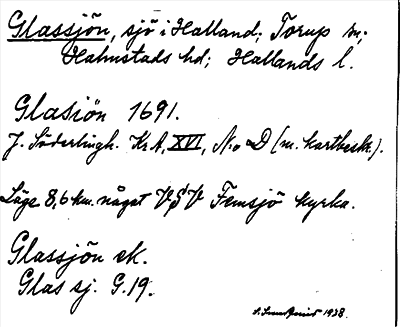 Glassjön, sjö i Halland; Torup sn;
Halmstads hd; Hallands l.
Glasiön 1691.
J. Söderlingh. KrA, XVI, No D (m. kartbeskr.).
Läge 8,6 km. något V.S.V Femsjö kyrka.
Glassjön ek.
Glas sj. G.19.
1928.